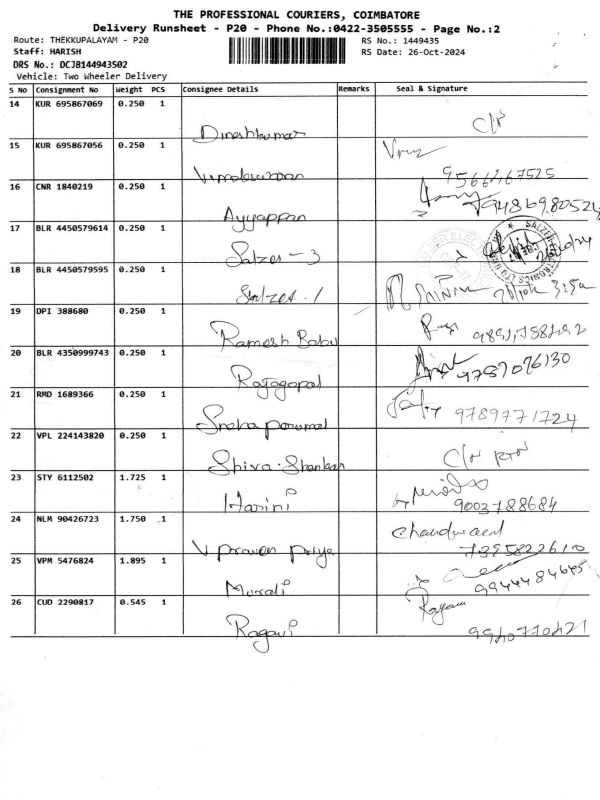 THE PROFESSIONAL COURIERS, COIMBATORE
Delivery Runsheet - P20 - Phone No.:0422-3505555 - Page No.:2
Route: THEKKUPALAYAM - P20 RS No.: 1449435
Staff: HARISH RS Date: 26-Oct-2024
DRS No.: DCJB144943502
Vehicle: Two Wheeler Delivery
S No Consignment No Weight PCS Consignee Details Remarks Seal & Signature
14 KUR 695867069 0.250 1
Dineshkumar C/N
15 KUR 695867056 0.250 1
Vimaleswaran 9566267525
16 CNR 1840219 0.250 1
Ayyappan 9486980524
17 BLR 4450579614 0.250 1
Salzer - 3
18 BLR 4450579595 0.250 1
Salzer - 1
19 DPI 388680 0.250 1
Ramesh Babu
20 BLR 4350999743 0.250 1
Rajagopal 9787076130
21 RMD 1689366 0.250 1
Perumal 9789771724
22 VPL 224143820 0.250 1
Shiva Shankar C/N RTN
23 STY 6112502 1.725 1
Harini 9003788684
24 NLM 90426723 1.750 1
V Praveen Priya 7395822610
25 VPM 5476824 1.895 1
Murali 9944484645
26 CUD 2290817 0.545 1
Ragavi